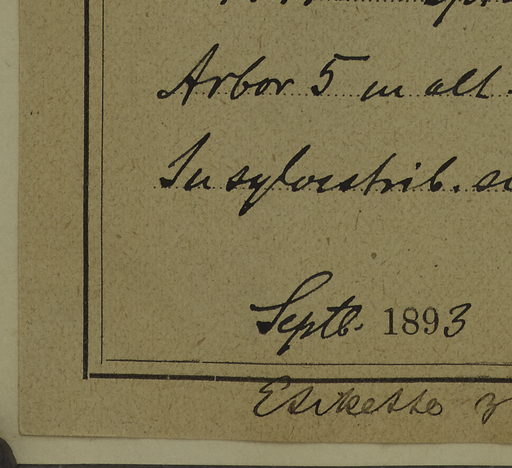 Arbor 5 m alt.
In sylvestrib.
Septb. 1893
Etikette